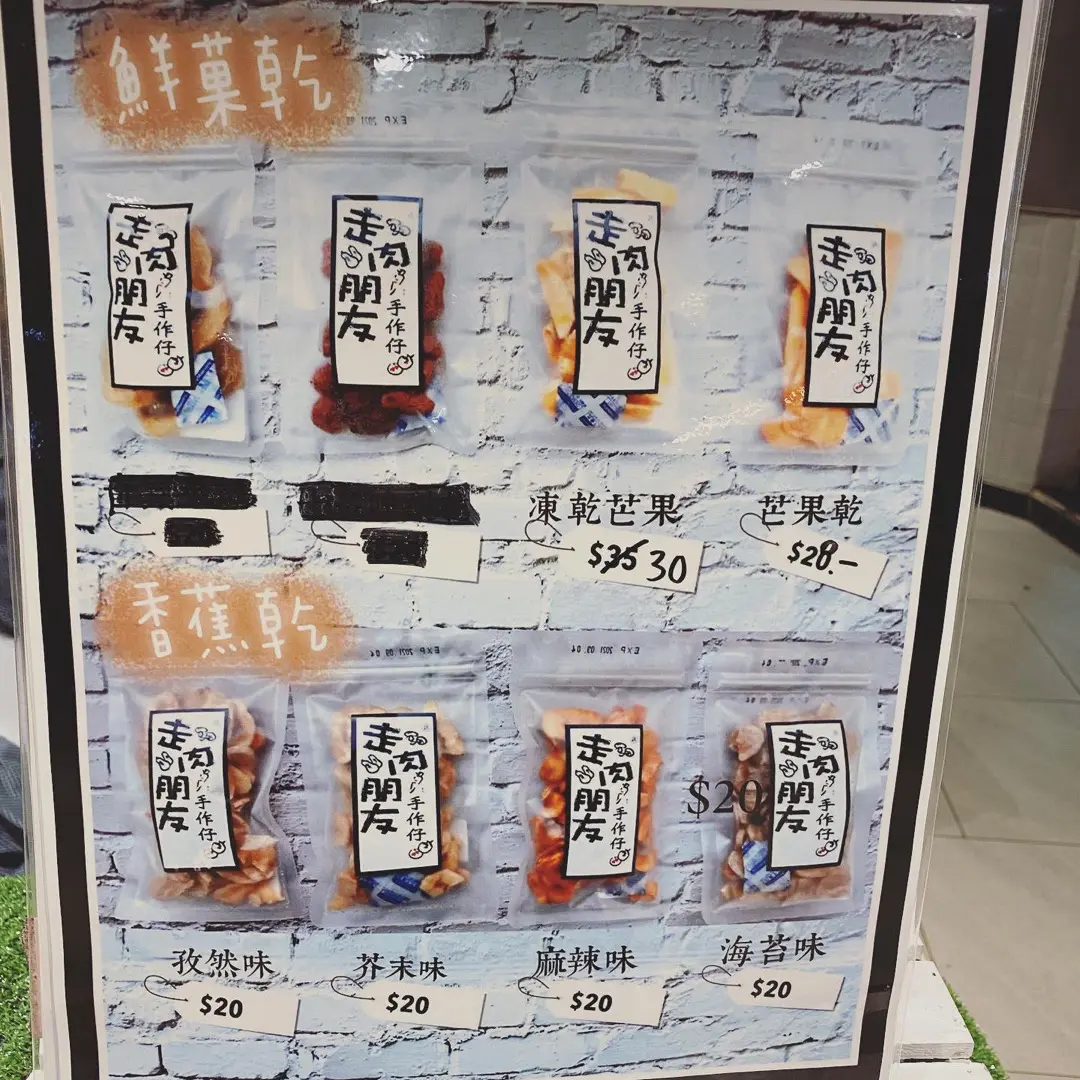 鮮菓乾
走肉朋友
手作仔
走肉朋友
手作仔
走肉朋友
手作仔
走肉朋友
手作仔
凍乾芒果
芒果乾
$35 30
$28.-
香蕉乾
EXP 2021.09.04
EXP 2021.09.04
走肉朋友
手作仔
走肉朋友
手作仔
走肉朋友
手作仔
走肉朋友
手作仔
$20
孜然味
芥末味
麻辣味
海苔味
$20
$20
$20
$20